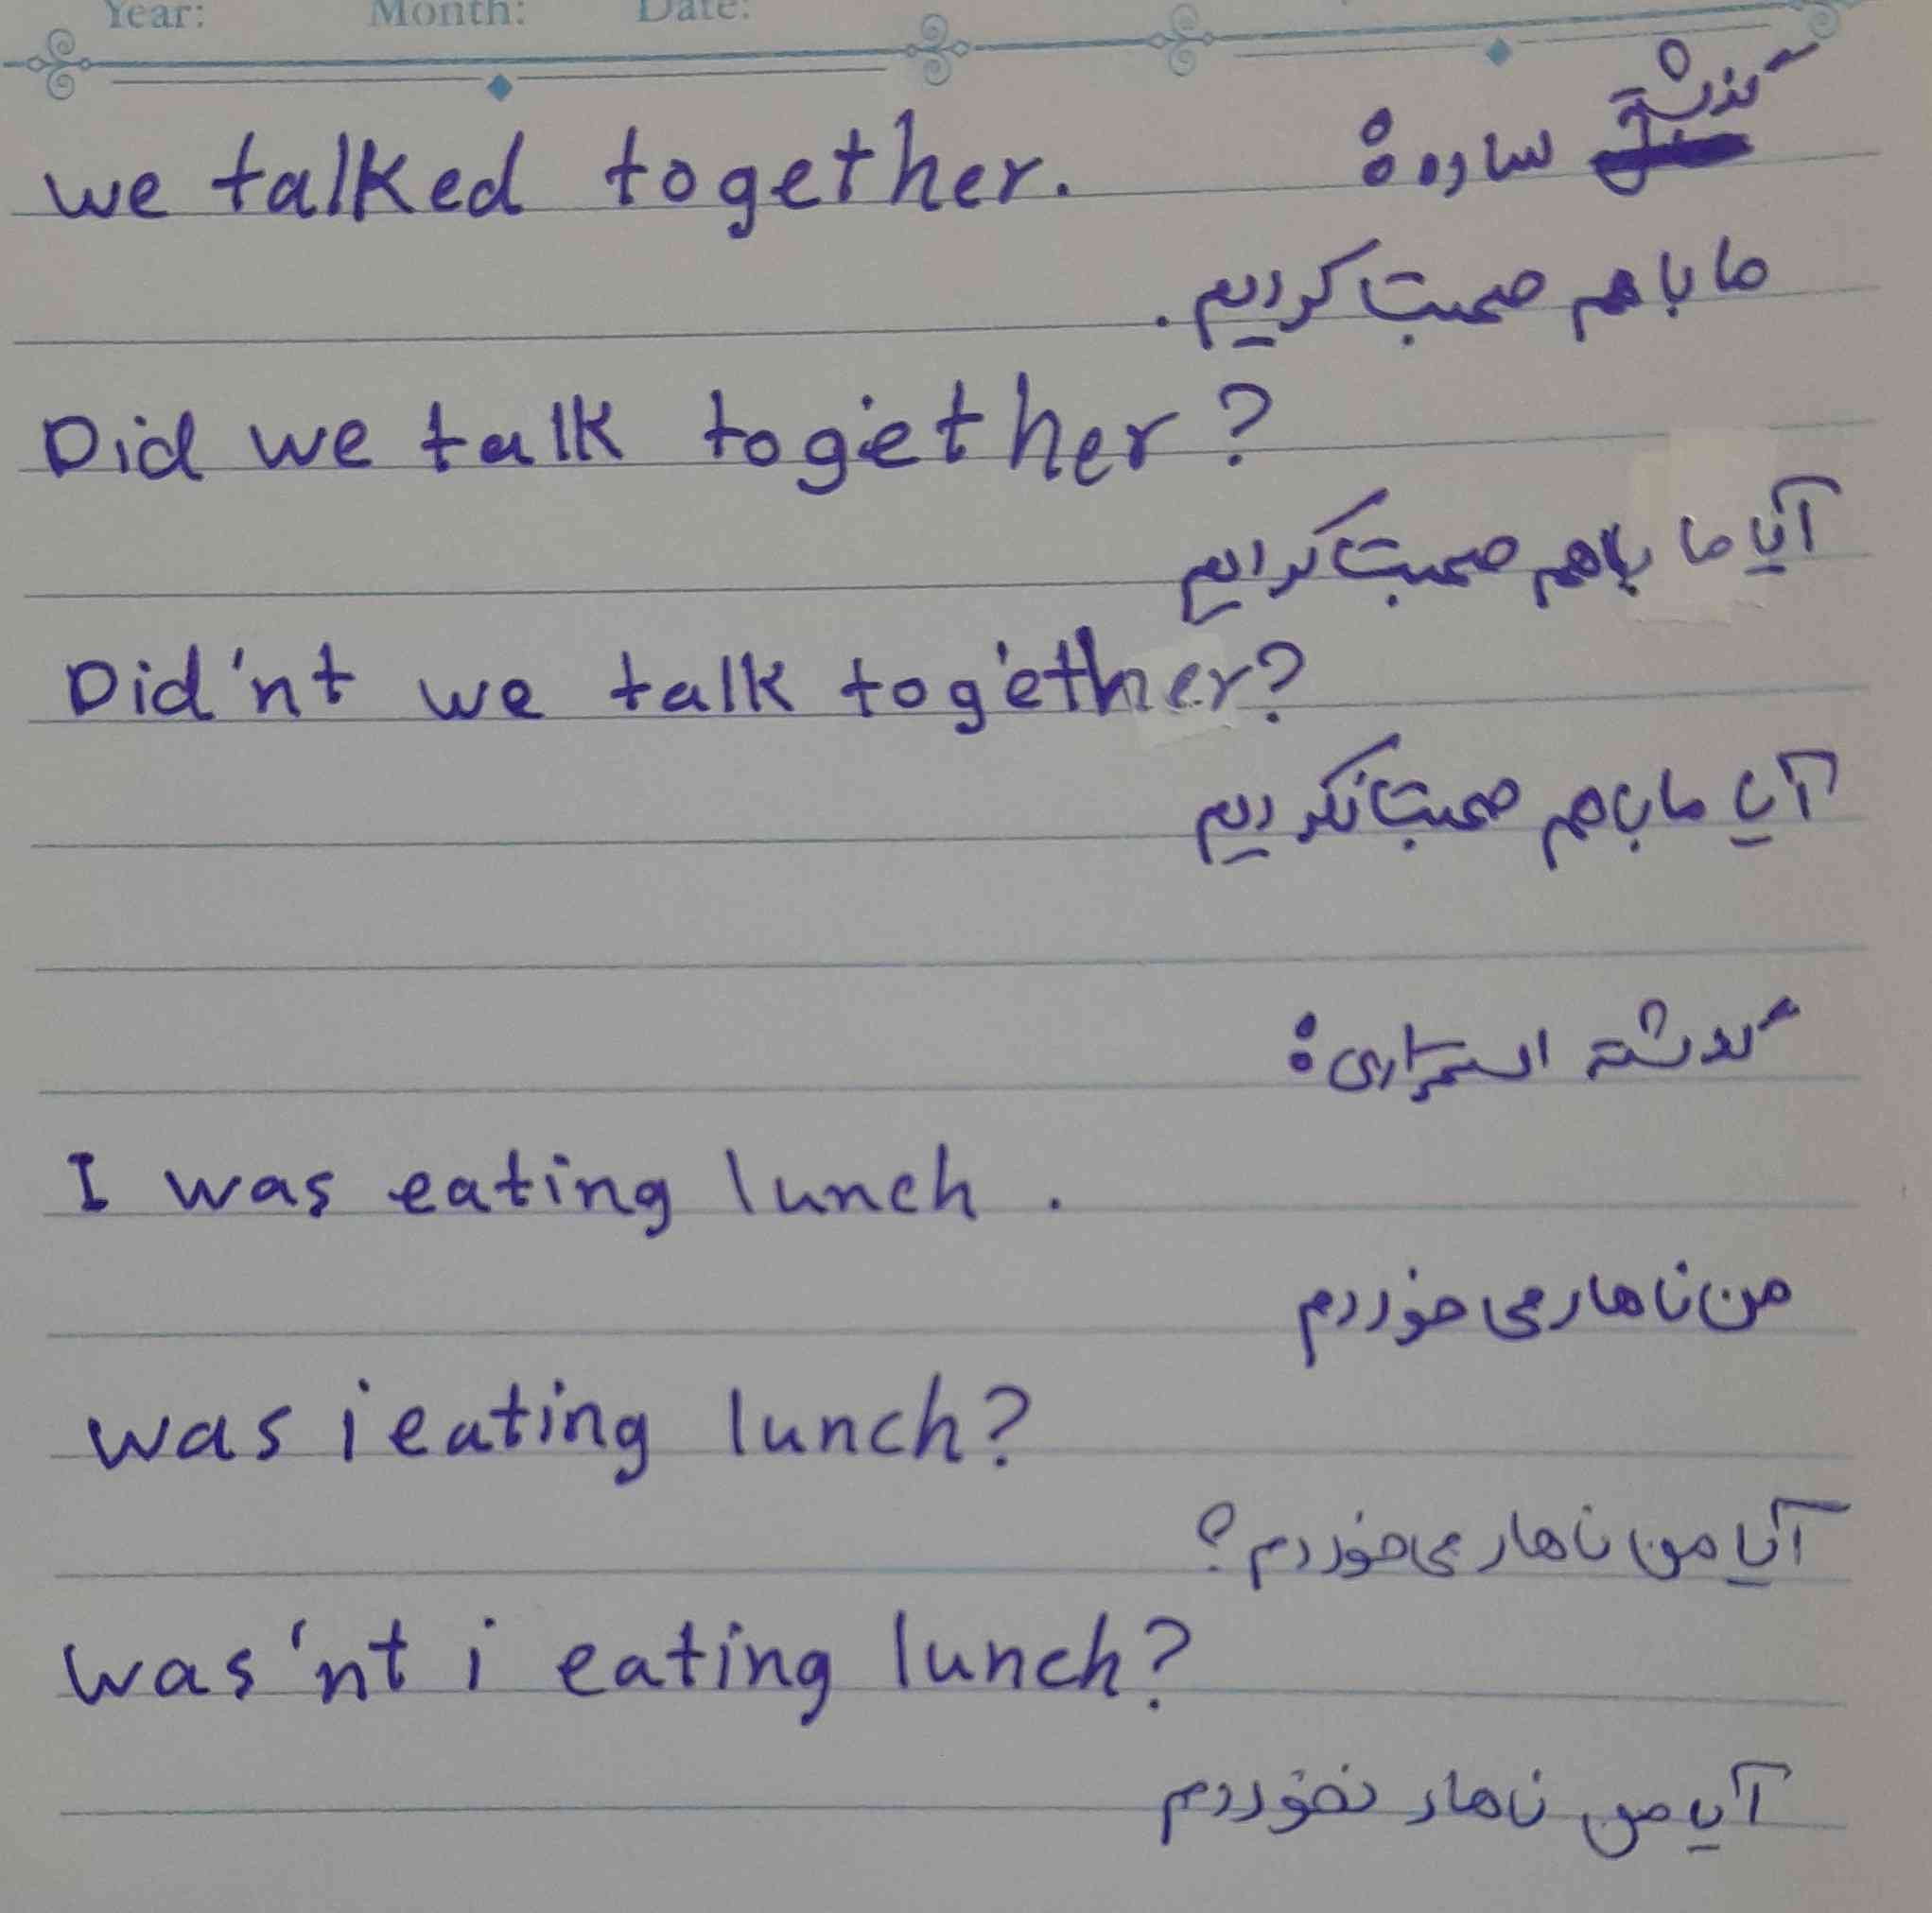 Year: Month: Date:
we talked together. گذشته ساده:
ما با هم صحبت کردیم.
Did we talk together?
آیا ما باهم صحبت کردیم
Did'nt we talk together?
آیا ما باهم صحبت نکردیم
گذشته استمراری:
I was eating lunch.
من ناهار می خوردم
was i eating lunch?
آیا من ناهار می خوردم؟
was'nt i eating lunch?
آیا من ناهار نخوردم